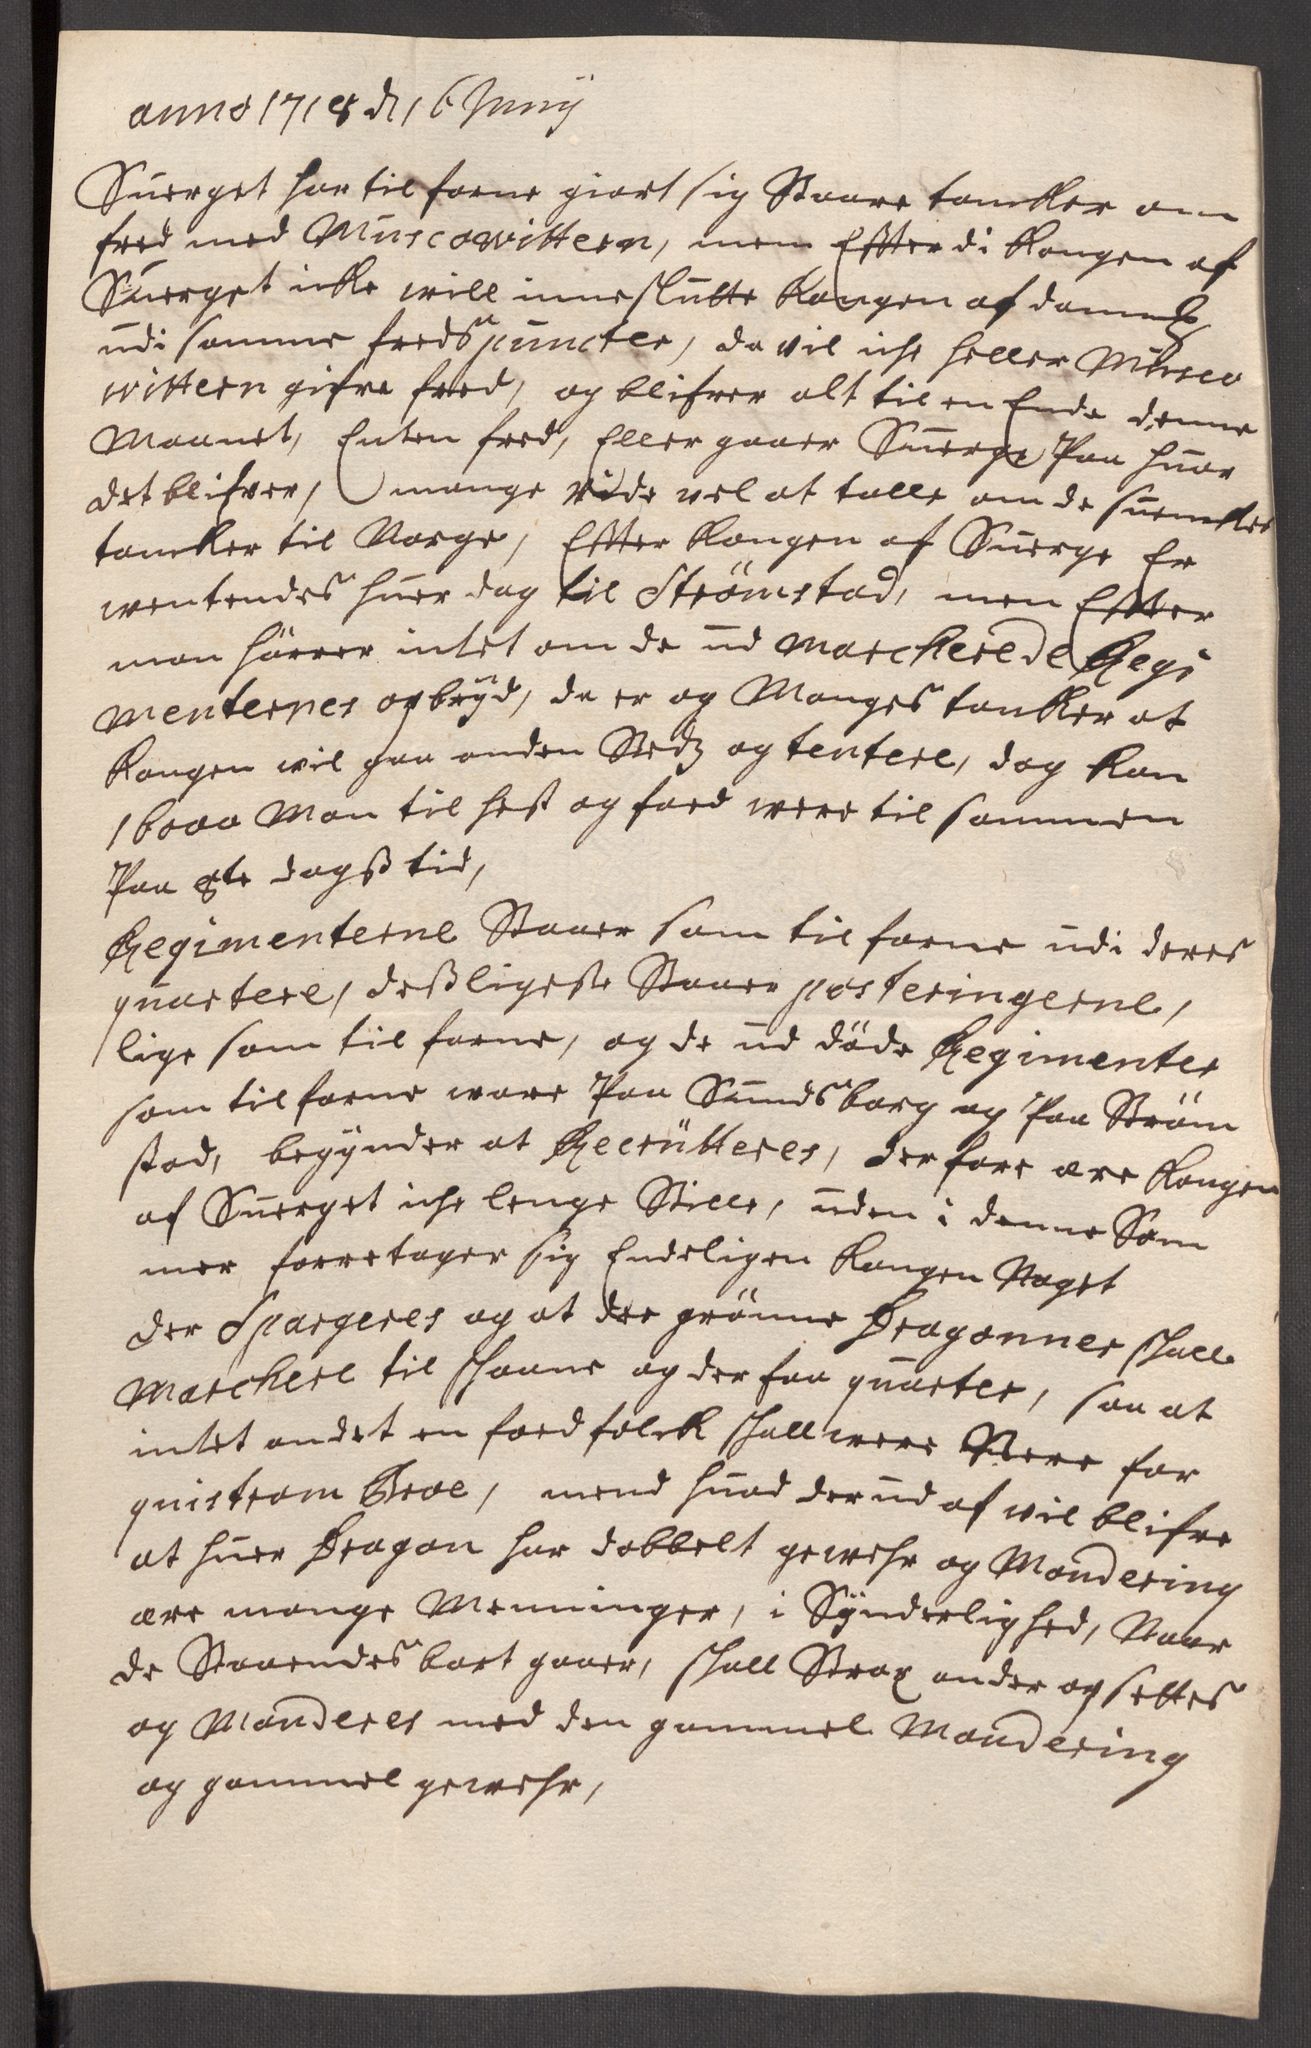 anno 1718 d 16 Junij
Suerget har til forne giort sig Staare tancker om
fred med Muscowittern, men Efftter di kongen af
Suerget icke will inneslutte kongen af danmk
udi samme fredspuncter, da vil iche heller Musco
wittern gifve fred, og blifver alt til en Ende denne
Maanet, Enten fred, Eller gaaer Suerge Paa huor
det blifver, mange vide vel at talle om de suenskes
tancker til Norge, Effter kongen af Suerge Er
wentendes huer dag til Strømstad, men Effter
man hörrer intet om de ud marcherede Regi
menternes opbryd, da er og Manges tancker at
kongen vil gaa anden Stedz og tentere, dog kan
16000 Man til hest og foed were til sammen
Paa 8te dagss tid,
Regimenterne Staaer som til forne udi deres
quartere, dessligeste Staaer posteringerne,
lige som til forne, og de ud döde Regimenter
som til forne ware Paa Sundsborg og Paa Ström
stad, begynder at Recrütteres, der fore ere kongen
af Suerget iche lenge Stille, uden i denne Som
mer forretager sig Endeligen kongen Noget
der Spargeres og at der grönne Dragonner skall
Marchere til skaane og der faa quarter, saa at
intet andet en foed folck skall were Nere for
quistrom Broe, mend huad der ud af vil blifve
at huer Dragon har dobbelt gewehr og Mondering
ere mange Menninger, i Synderlighed, Naar
de Staaendes bort gaaer, skall Strax ander opsettes
og Monderes med den gammel Mondering
og gammel gewehr,